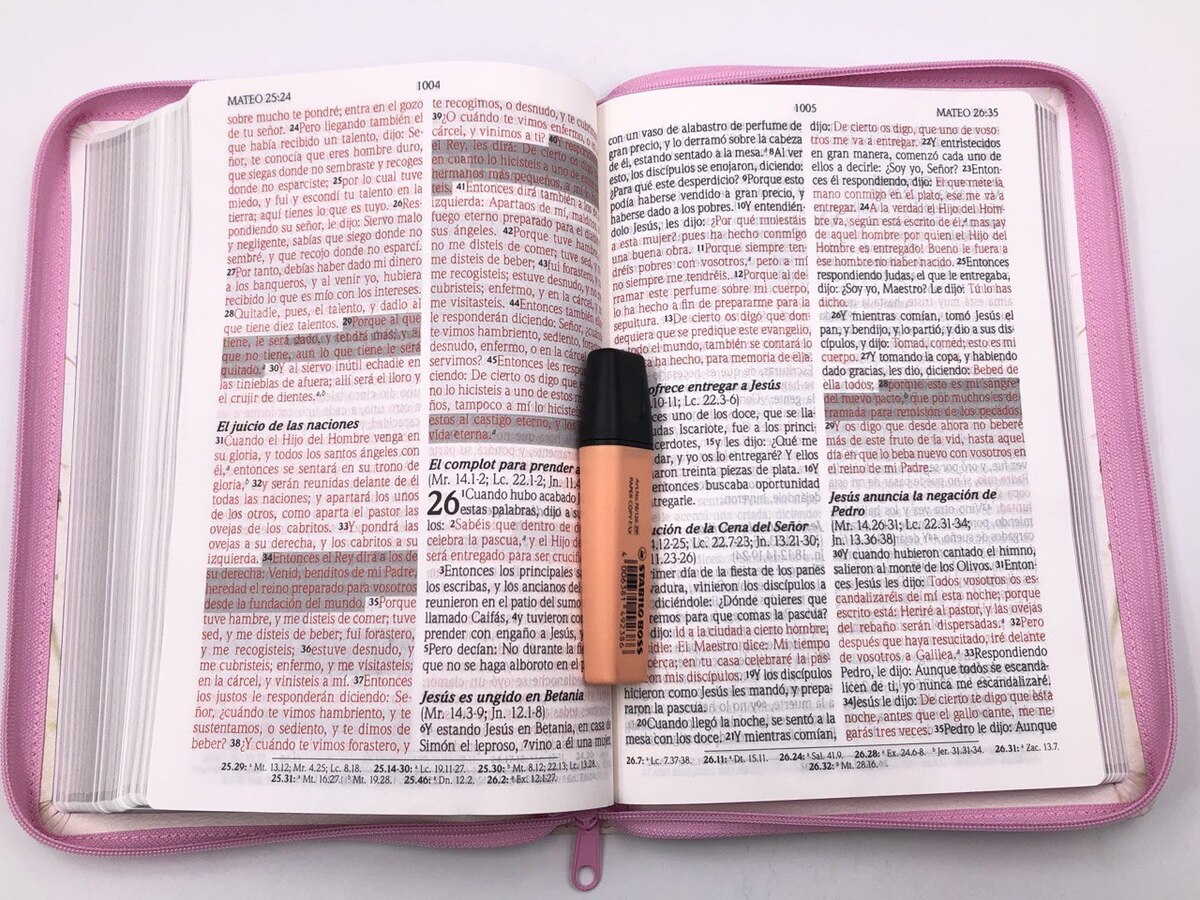 MATEO 25:24
1004
sobre mucho te pondré; entra en el gozo
de tu señor. 24Pero llegando también el
que había recibido un talento, dijo: Se-
ñor, te conocía que eres hombre duro,
que siegas donde no sembraste y recoges
donde no esparciste; 25por lo cual tuve
miedo, y fui y escondí tu talento en la
tierra; aquí tienes lo que es tuyo. 26Res-
pondiendo su señor, le dijo: Siervo malo
y negligente, sabías que siego donde no
sembré, y que recojo donde no esparcí.
27Por tanto, debías haber dado mi dinero
a los banqueros, y al venir yo, hubiera
recibido lo que es mío con los intereses.
28Quitadle, pues, el talento, y dadlo al
que tiene diez talentos. 29Porque al que
tiene, le será dado, y tendrá más; y al
que no tiene, aun lo que tiene le será
quitado. 30Y al siervo inútil echadle en
las tinieblas de afuera; allí será el lloro y
el crujir de dientes.
El juicio de las naciones
31Cuando el Hijo del Hombre venga en
su gloria, y todos los santos ángeles con
él, entonces se sentará en su trono de
gloria, 32y serán reunidas delante de él
todas las naciones; y apartará los unos
de los otros, como aparta el pastor las
ovejas de los cabritos. 33Y pondrá las
ovejas a su derecha, y los cabritos a su
izquierda. 34Entonces el Rey dirá a los de
su derecha: Venid, benditos de mi Padre,
heredad el reino preparado para vosotros
desde la fundación del mundo. 35Porque
tuve hambre, y me disteis de comer; tuve
sed, y me disteis de beber; fui forastero,
y me recogisteis; 36estuve desnudo, y
me cubristeis; enfermo, y me visitasteis;
en la cárcel, y vinisteis a mí. 37Entonces
los justos le responderán diciendo: Se-
ñor, ¿cuándo te vimos hambriento, y te
sustentamos, o sediento, y te dimos de
beber? 38¿Y cuándo te vimos forastero, y
te recogimos, o desnudo, y te cubrimos
39¿O cuándo te vimos enfermo, o en
cárcel, y vinimos a ti? 40Y
el Rey, les dirá: De cierto os
en cuanto lo hicisteis a uno de
hermanos más pequeños, a mí lo
teis. 41Entonces dirá también a los de
izquierda: Apartaos de mí,
fuego eterno preparado para el
sus ángeles. 42Porque tuve
no me disteis de comer; tuve sed, y
me disteis de beber; 43fui forastero,
me recogisteis; estuve desnudo, y no
cubristeis; enfermo, y en la cárcel,
me visitasteis. 44Entonces también
le responderán diciendo: Señor, ¿cuándo
te vimos hambriento, sediento,
desnudo, enfermo, o en la cárcel,
servimos? 45Entonces les
ciendo: De cierto os digo que
no lo hicisteis a uno de estos
ños, tampoco a mí lo hicisteis.
estos al castigo eterno, y los
vida eterna.
El complot para prender a
(Mr. 14.1-2; Lc. 22.1-2; Jn. 11.4
26 1Cuando hubo acabado
estas palabras, dijo a
los: 2Sabéis que dentro de
celebra la pascua, y el Hijo
será entregado para ser
3Entonces los principales
los escribas, y los ancianos del
reunieron en el patio del sumo
llamado Caifás, 4y tuvieron
prender con engaño a Jesús, y
5Pero decían: No durante la
que no se haga alboroto en el
Jesús es ungido en Betania
(Mr. 14.3-9; Jn. 12.1-8)
6Y estando Jesús en Betania, en casa de
Simón el leproso, 7vino a él una mujer,
25.29: Mt. 13.12; Mr. 4.25; Lc. 8.18. 25.14-30: Lc. 19.11-27. 25.30: Mt. 8.12; 22.13; Lc. 13.28.
25.31: Mt. 16.27; Mt. 19.28. 25.46: Dn. 12.2. 26.2: Ex. 12.1-27.
1005
MATEO 26:35
con un vaso de alabastro de perfume de
gran precio, y lo derramó sobre la cabeza
de él, estando sentado a la mesa. 8Al ver
esto, los discípulos se enojaron, diciendo:
¿Para qué este desperdicio? 9Porque esto
podía haberse vendido a gran precio, y
haberse dado a los pobres. 10Y entendién-
dolo Jesús, les dijo: ¿Por qué molestáis
a esta mujer? pues ha hecho conmigo
una buena obra. 11Porque siempre ten-
dréis pobres con vosotros, pero a mí
no siempre me tendréis. 12Porque al de-
rramar este perfume sobre mi cuerpo,
lo ha hecho a fin de prepararme para la
sepultura. 13De cierto os digo que don-
dequiera que se predique este evangelio,
todo el mundo, también se contará lo
a ha hecho, para memoria de ella.
ofrece entregar a Jesús
.10-11; Lc. 22.3-6)
ces uno de los doce, que se lla-
udas Iscariote, fue a los princi-
cerdotes, 15y les dijo: ¿Qué me
dar, y yo os lo entregaré? Y ellos
aron treinta piezas de plata. 16Y
entonces buscaba oportunidad
tregarle.
ución de la Cena del Señor
4.12-25; Lc. 22.7-23; Jn. 13.21-30;
11.23-26)
imer día de la fiesta de los panes
vadura, vinieron los discípulos a
diciéndole: ¿Dónde quieres que
remos para que comas la pascua?
dijo: Id a la ciudad a cierto hombre,
idle: El Maestro dice: Mi tiempo
cerca; en tu casa celebraré la pas-
con mis discípulos. 19Y los discípulos
hicieron como Jesús les mandó, y prepa-
raron la pascua.
20Cuando llegó la noche, se sentó a la
mesa con los doce. 21Y mientras comían,
dijo: De cierto os digo, que uno de voso-
tros me va a entregar. 22Y entristecidos
en gran manera, comenzó cada uno de
ellos a decirle: ¿Soy yo, Señor? 23Enton-
ces él respondiendo, dijo: El que mete la
mano conmigo en el plato, ese me va a
entregar. 24A la verdad el Hijo del Hom-
bre va, según está escrito de él, mas ¡ay
de aquel hombre por quien el Hijo del
Hombre es entregado! Bueno le fuera a
ese hombre no haber nacido. 25Entonces
respondiendo Judas, el que le entregaba,
dijo: ¿Soy yo, Maestro? Le dijo: Tú lo has
dicho.
26Y mientras comían, tomó Jesús el
pan, y bendijo, y lo partió, y dio a sus dis-
cípulos, y dijo: Tomad, comed; esto es mi
cuerpo. 27Y tomando la copa, y habiendo
dado gracias, les dio, diciendo: Bebed de
ella todos; 28porque esto es mi sangre
del nuevo pacto, que por muchos es de-
rramada para remisión de los pecados.
29Y os digo que desde ahora no beberé
más de este fruto de la vid, hasta aquel
día en que lo beba nuevo con vosotros en
el reino de mi Padre.
Jesús anuncia la negación de
Pedro
(Mr. 14.26-31; Lc. 22.31-34;
Jn. 13.36-38)
30Y cuando hubieron cantado el himno,
salieron al monte de los Olivos. 31Enton-
ces Jesús les dijo: Todos vosotros os es-
candalizaréis de mí esta noche; porque
escrito está: Heriré al pastor, y las ovejas
del rebaño serán dispersadas. 32Pero
después que haya resucitado, iré delante
de vosotros a Galilea. 33Respondiendo
Pedro, le dijo: Aunque todos se escanda-
licen de ti, yo nunca me escandalizaré.
34Jesús le dijo: De cierto te digo que esta
noche, antes que el gallo cante, me ne-
garás tres veces. 35Pedro le dijo: Aunque
26.7: Lc. 7.37-38. 26.11: Dt. 15.11. 26.24: Sal. 41.9. 26.28: Ex. 24.6-8. Jer. 31.31-34. 26.31: Zac. 13.7.
26.32: Mt. 28.16.
STABILO BOSS
4 006381 492386